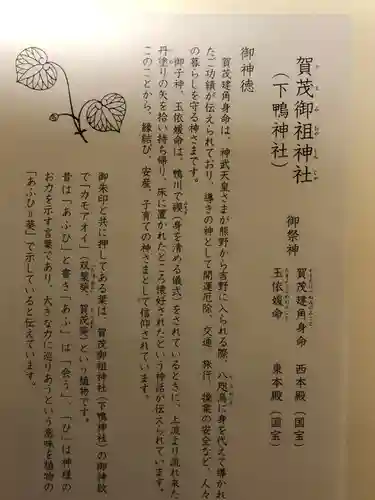 賀茂御祖神社
かもみおやじんじゃ
（下鴨神社）
御祭神
賀茂建角身命　西本殿（国宝）
玉依媛命　東本殿（国宝）
御神徳
賀茂建角身命は、神武天皇さまが熊野から吉野に入られる際、八咫烏に身を代えて導かれ
たご功績が伝えられており、導きの神として開運厄除、交通、旅行、操業の安全など、人々
の暮らしを守る神さまです。
御子神、玉依媛命は、鴨川で禊（身を清める儀式）をされているときに、上流より流れ来た
丹塗りの矢を拾い持ち帰り、床に置かれたところ懐妊されたという神話が伝えられています。
このことから、縁結び、安産、子育ての神さまとして信仰されています。
御朱印と共に押してある葉は、賀茂御祖神社（下鴨神社）の御神紋
で「カモアオイ」（双葉葵、賀茂葵）という植物です。
昔は「あふひ」と書き「あふ」は「会う」、「ひ」は神様の
お力を示す言葉であり、大きな力に巡りあうという意味を植物の
「あふひ＝葵」で示していると伝えています。